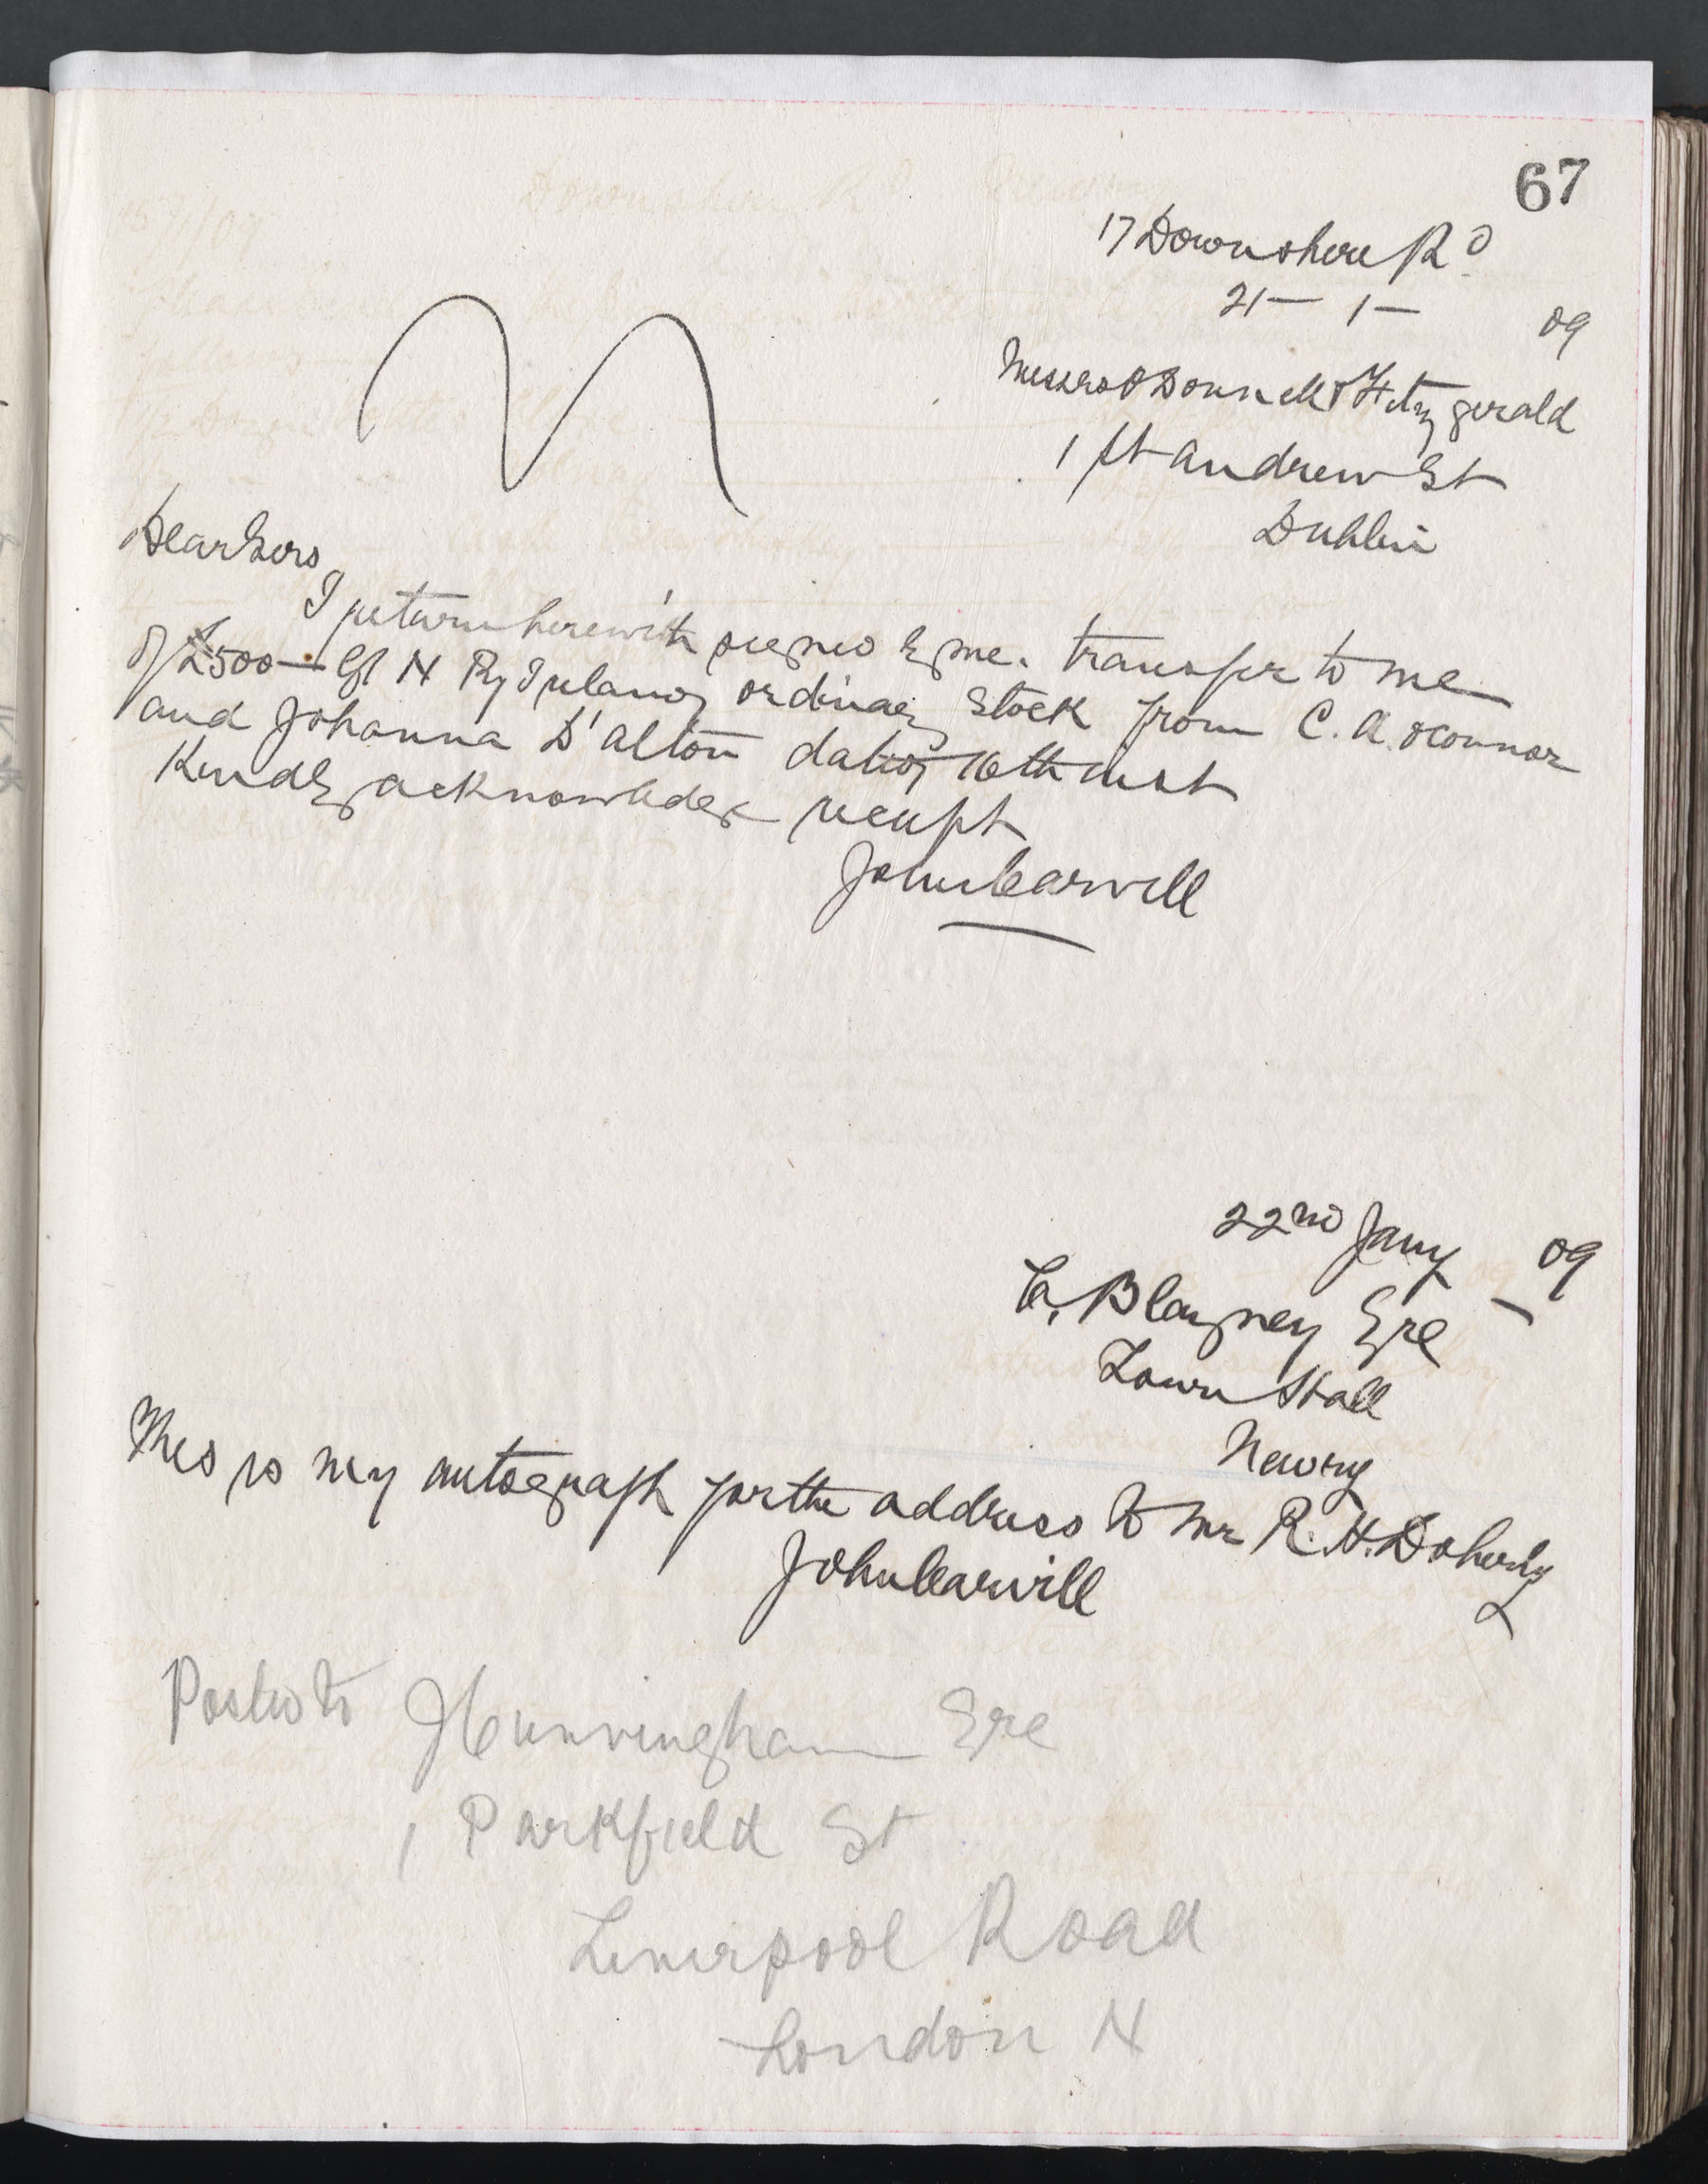 67
17 Downshire Rd
21 — 1 — 09
Messrs O Donnell & Fitzgerald
1 St Andrew St
Dublin
Dear Sirs
I return herewith signed by me. transfer to me
of £500 — Gt N Ry Ireland ordinary Stock from C. A. O'Connor
and Johanna D'Alton dated 16th inst
Kindly acknowledge receipt
John Carvill
22nd Jany 09
C. Blayney Esq
Town Hall
Newry
This is my autograph for the address to Mr R. H. Doherty
John Carvill
Posted to J Cunningham Esq
1 Parkfield St
Liverpool Road
London N